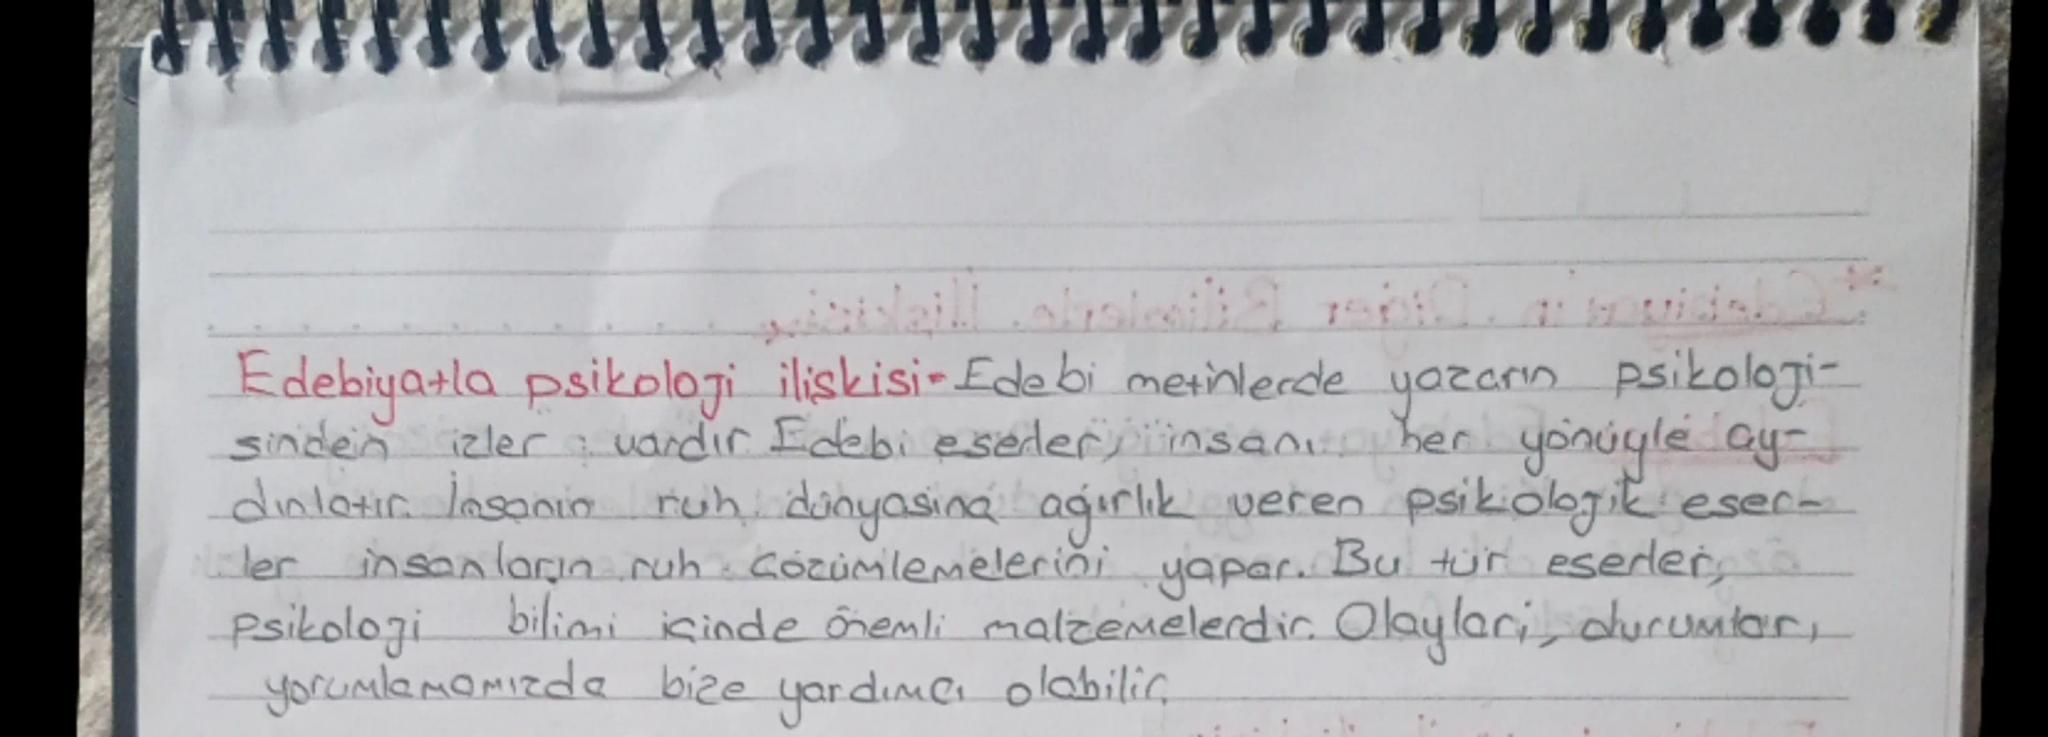 Edebiyatla psikoloji ilişkisi- Edebi metinlerde yazarın psikoloji-
sinden izler vardır. Edebi eserler, insanı her yönüyle ay-
dınlatır. İnsanın ruh dünyasına ağırlık veren psikolojik eser-
ler insanların ruh çözümlemelerini yapar. Bu tür eserler,
psikoloji bilimi içinde önemli malzemelerdir. Olayları, durumları,
yorumlamamızda bize yardımcı olabilir.